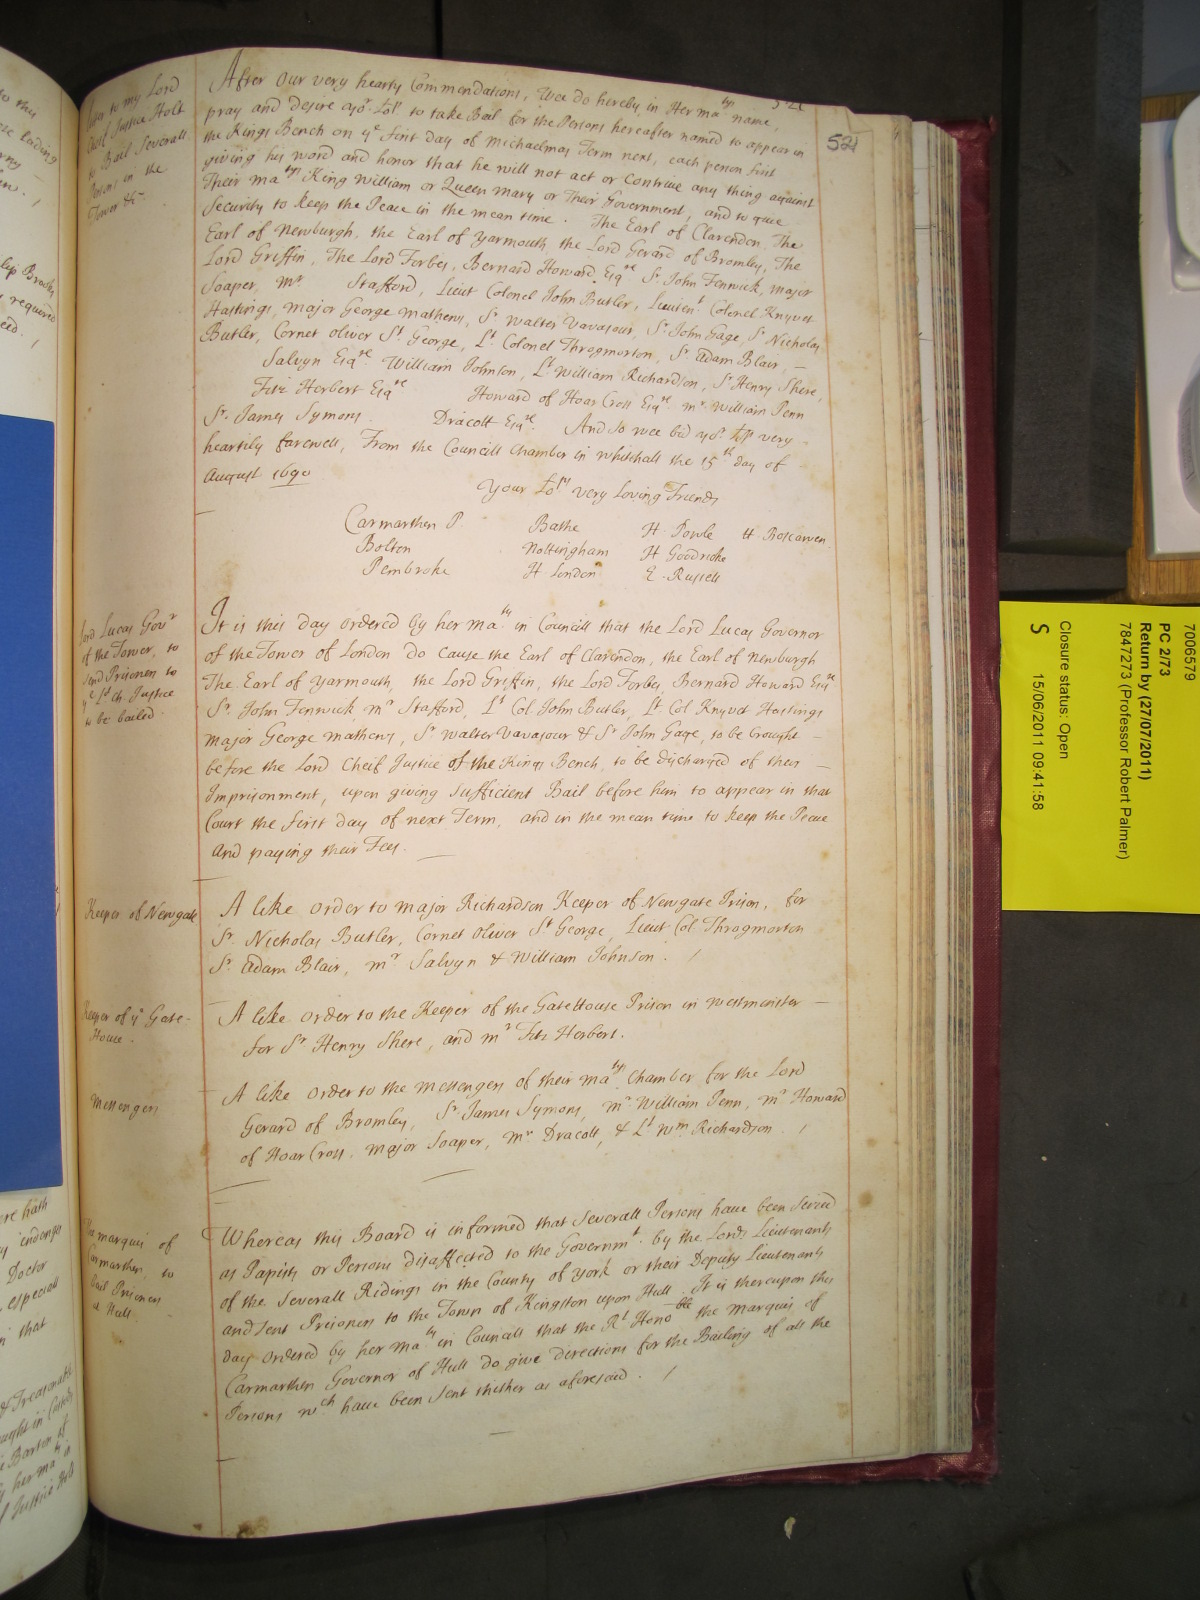 521
521
Letter to my Lord
Cheif Justice Holt
to Bail Severall
Persons in the
Tower &c
After our very hearty Commendations, Wee do hereby in Her Ma^tys name,
pray and desire yo^r. Lo^p. to take Bail for the Persons hereafter named to appear in
the Kings Bench on y^e first day of Michaelmas Term next, each person first
giving his word and honor that he will not act or contrive any thing against
Their Ma^tys King William or Queen Mary or Their Government, and to give
Security to keep the Peace in the mean time. The Earl of Clarendon, The
Earl of Newburgh, the Earl of Yarmouth, the Lord Gerard of Bromley, The
Lord Griffin, The Lord Forbes, Bernard Howard Esq^re S^r. John Fenwick, Major
Soaper, M^r Stafford, Lieut Colonel John Butler, Lieuten^t Colonel Knyvet
Hastings, Major George Mathews, S^r Walter Vavasour, S^r John Gage, S^r Nicholas
Butler, Cornet Oliver S^t. George, L^t. Colonel Throgmorton, S^r. Adam Blair, —
Salvyn Esq^re. William Johnson, L^t William Richardson, S^r Henry Shere,
Fitz Herbert Esq^re Howard of Hoar Cross Esq^re. M^r. William Penn
S^r. James Symons Dracott Esq^re. And so wee bid yo^r. Lo^p very –
heartily farewell, From the Councill Chamber in Whitehall the 15^th day of –
August 1690
Your Lo^ps very loving Friends
Carmarthen P. Bathe H. Powle H. Boscawen
Bolton Nottingham H Goodricke
Pembroke H London E. Russell
Lord Lucas Gov^r
of the Tower, to
send Prisoners to
y^e L^d Ch. Justice
to be bailed.
It is this day Ordered by her Ma^ty in Councill that the Lord Lucas Governor
of the Tower of London Do Cause the Earl of Clarendon, the Earl of Newburgh
The Earl of Yarmouth, the Lord Griffin, the Lord Forbes, Bernard Howard Esq^re
S^r. John Fenwick M^r Stafford, L^t Col John Butler, L^t. Col Knyvet Hastings
Major George Mathews, S^r Walter Vavasour & S^r John Gage, to be brought –
before the Lord Cheif Justice of the Kings Bench, to be discharged of their —
Imprisonment, upon giving sufficient Bail before him to appear in that
Court the first day of next Term, and in the mean time to keep the Peace
And paying their Fees.
Keeper of Newgate
A like Order to Major Richardson Keeper of Newgate Prison, for
S^r. Nicholas Butler, Cornet Oliver S^t George, Lieut Col. Throgmorton
S^r. Adam Blair, M^r Salvyn & William Johnson. /
Keeper of y^e Gate-
House.
A like Order to the Keeper of the GateHouse Prison in Westminster —
for S^r. Henry Shere, and M^r Fitz Herbert.
Messengers
A like Order to the Messengers of their Ma^tys Chamber for the Lord
Gerard of Bromley, S^r. James Symons, M^r William Penn, M^r Howard
of Hoar Cross, Major Soaper, M^r Dracott, & L^t W^m Richardson. /
The Marquis of
Carmarthen, to
bail Prisoners
at Hull.
Whereas this Board is informed that Severall Persons have been Seized
as Papists or Persons disaffected to the Governm^t. by the Lords Lieutenants
of the Severall Ridings in the County of York or their Deputy Lieutenants
and sent Prisoners to the Town of Kingston upon Hull. It is thereupon this
day Ordered by her Ma^ty in Councill that the R^t Hono^ble the Marquis of
Carmarthen Governor of Hull Do give directions for the Bailing of all the
Persons w^ch have been sent thither as aforesaid. /
7006579
PC 2/73
Return by (27/07/2011)
7847273 (Professor Robert Palmer)
Closure status: Open
15/06/2011 09:41:58
S